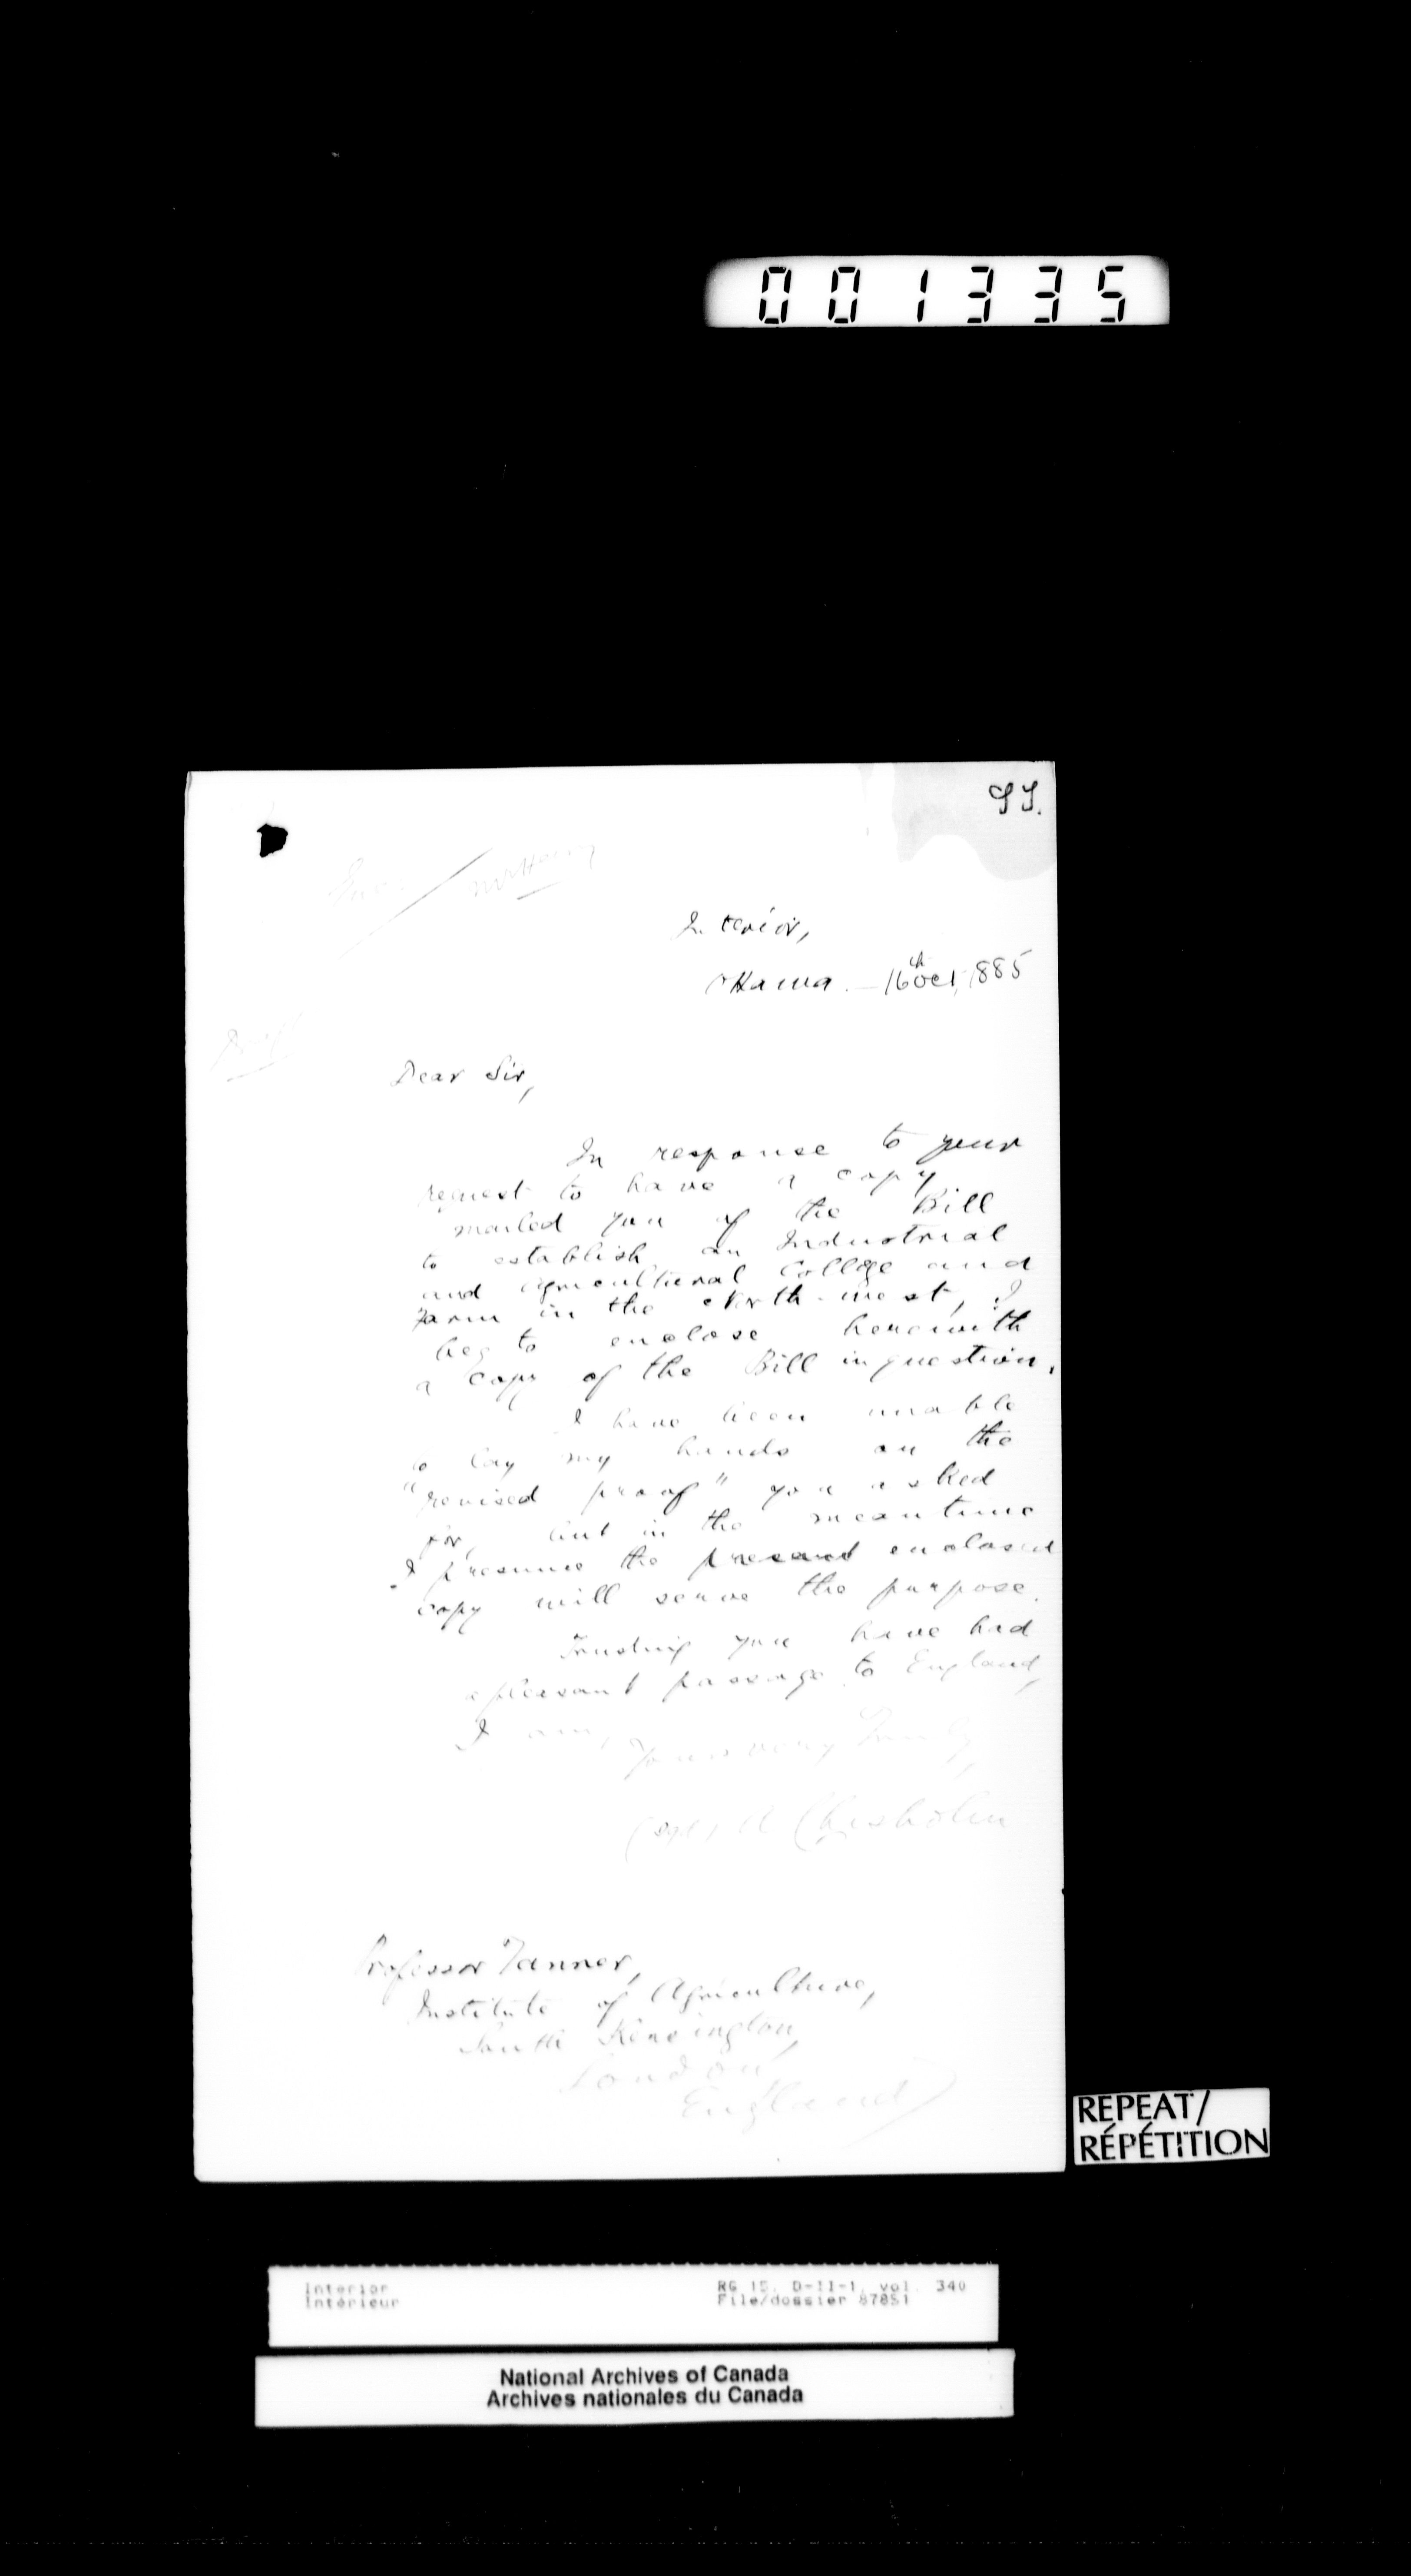 001335
Interior,
Ottawa. - 16th Oct, 1885
Dear Sir,
In response to your
request to have a copy
mailed you of the Bill
to establish an Industrial
and Agricultural College and
Farm in the North-west, I
beg to enclose herewith
a copy of the Bill in question.
I have been unable
to lay my hands on the
"revised proof" you asked
for, but in the meantime
I presume the present enclosed
copy will serve the purpose.
Trusting you have had
a pleasant passage to England,
I am,
Yours very Truly,
(sgd) A Chisholm
Professor Tanner,
Institute of Agriculture,
South Kensington,
London,
England
REPEAT/
RÉPÉTITION
Interior RG 15, D-II-1, vol. 340
Intérieur File/dossier 87851
National Archives of Canada
Archives nationales du Canada